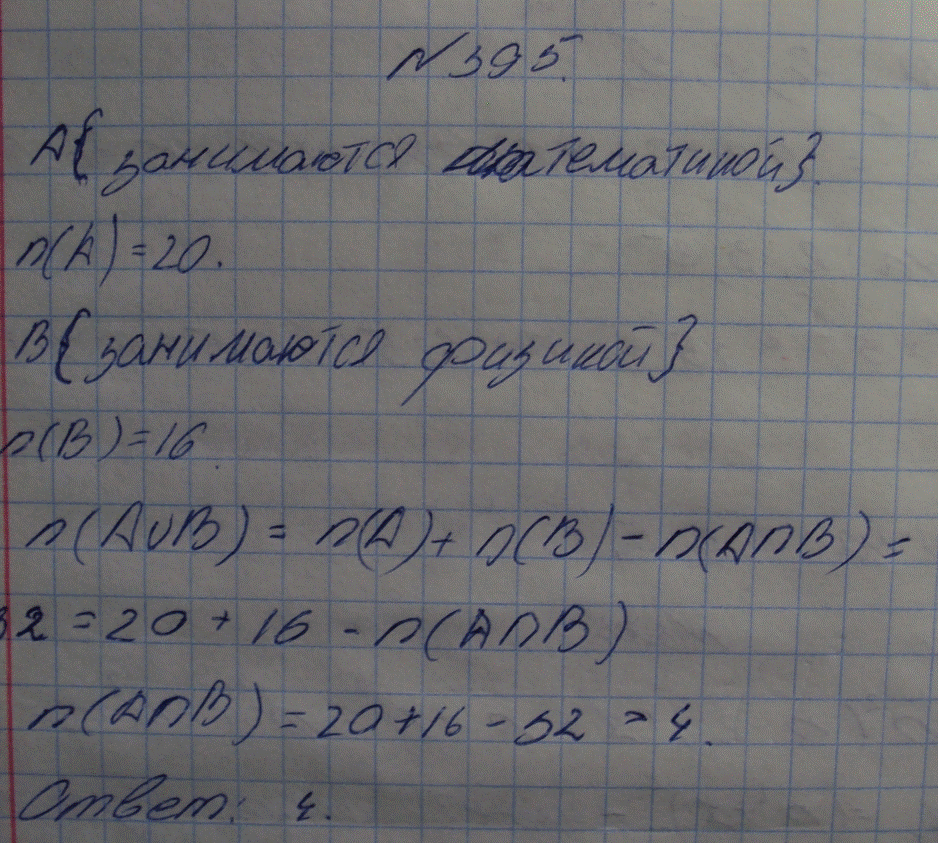 N 395.
A{занимаются математикой}.
n(A)=20.
B{занимаются физикой}
n(B)=16.
n(A∪B) = n(A)+ n(B) - n(A∩B) =
32 = 20 + 16 - n(A∩B)
n(A∩B) = 20+16 - 32 = 4.
Ответ: 4.